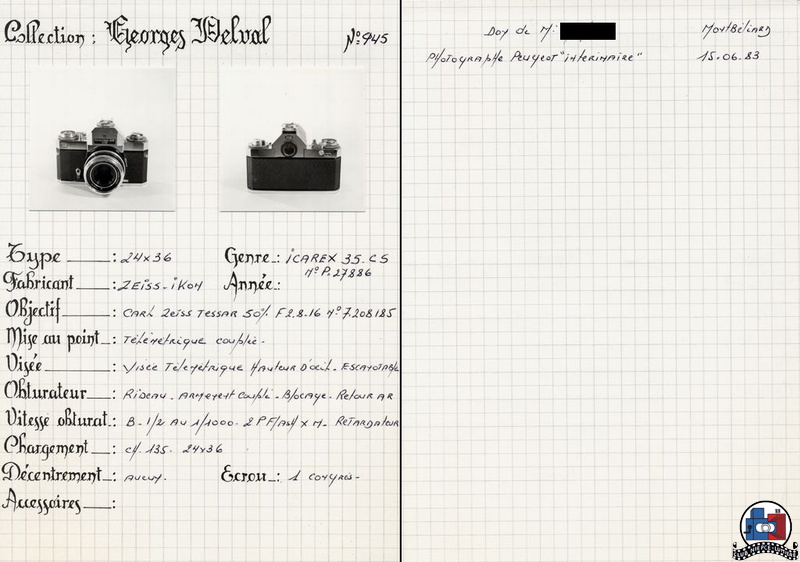 Collection : Georges Delval Nº 945
Type : 24x36
Genre : iCAREX 35. CS
Nº P. 27886
Fabricant : ZEISS-iKON
Année :
Objectif : CARL Zeiss TESSAR 50% F 2.8.16 Nº 7208185
Mise au point : Télémetrique couplée.
Visée : Visée Télémetrique Hauteur D'oeil. ESCAMOTABLE
Obturateur : Rideau. Armement Couplé. Blocage. Retour AR
Vitesse obturat. : B. 1/2 AU 1/1000. 2 P Flash x M. RETARDATEUR
Chargement : ch. 135. 24x36
Décentrement : aucun.
Ecrou : 1 congrès.
Accessoires :
Don de Mr: MontBéliard
Photographe Peugeot "interimaire" 15.06.83